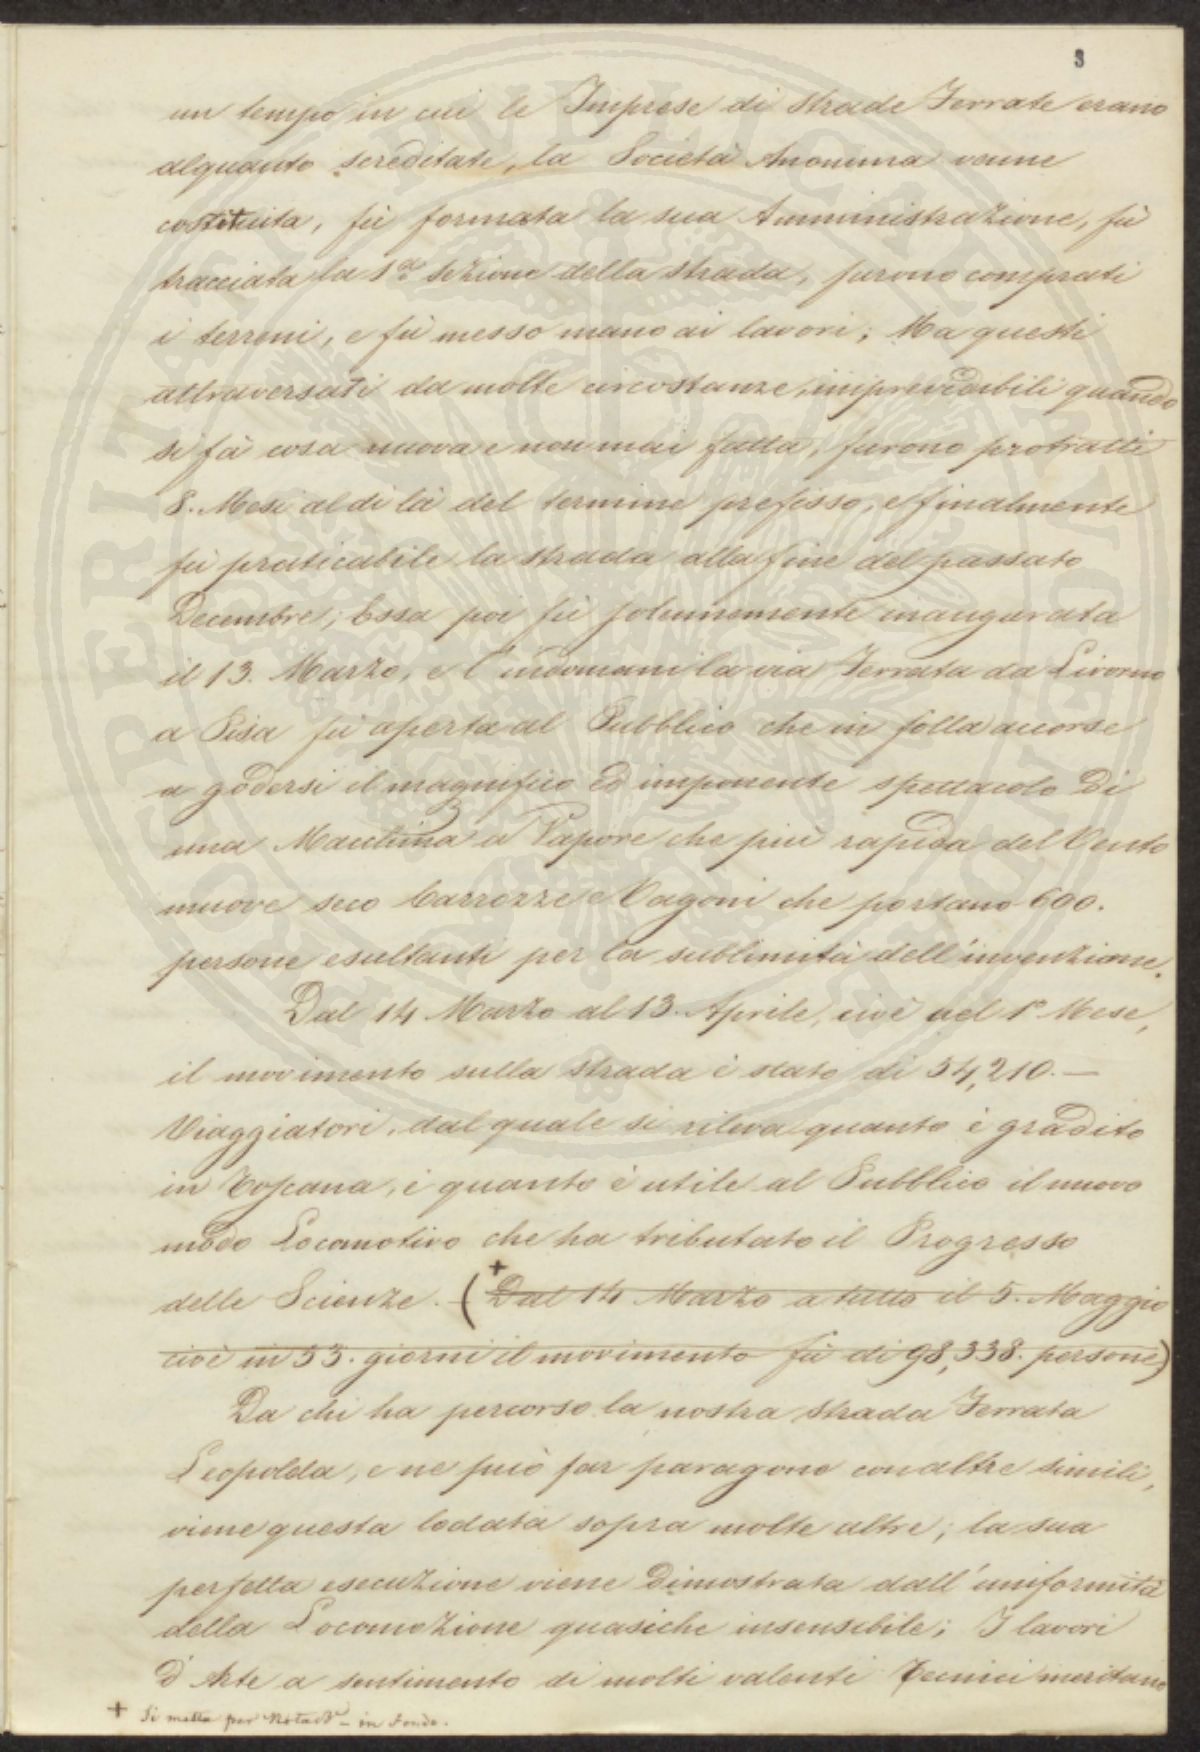 3
un tempo in cui le Imprese di Strade Ferrate erano
alquanto screditate, la Società Anonima venne
costituita, fù formata la sua Amministrazione, fù
tracciata la 1.a Sezione della strada, furono comprati
i terreni, e fù messo mano ai lavori; Ma questi
attraversati da molte circostanze, imprevedibili quando
si fà cosa nuova e non mai fatta, furono protratti
8. Mesi al di là del termine prefisso, e finalmente
fù praticabile la strada alla fine del passato
Decembre; Essa poi fù solennemente inaugurata
il 13. Marzo, e l'indomani la via Ferrata da Livorno
a Pisa fù aperta al Pubblico che in folla accorse
a godersi il magnifico ed imponente spettacolo di
una Macchina a Vapore che più rapida del Vento
muove seco Carrozze e Vagoni che portano 600.
persone esultanti per la sublimità dell'invenzione.
Dal 14 Marzo al 13. Aprile, cioè nel 1° Mese,
il movimento sulla strada è stato di 54,210. —
Viaggiatori, dal quale si rileva quanto è gradito
in Toscana, e quanto è utile al Pubblico il nuovo
modo Locomotivo che ha tributato il Progresso
delle Scienze. — (+ Dal 14 Marzo a tutto il 5. Maggio
cioè in 53. giorni il movimento fù di 98,338. persone)
Da chi ha percorso la nostra strada Ferrata
Leopolda, e ne può far paragone con altre simili,
viene questa lodata sopra molte altre; la sua
perfetta esecuzione viene dimostrata dall'uniformità
della Locomozione quasiche insensibile; I lavori
d'Arte a sentimento di molti valenti Tecnici meritano
+ Si metta per Nota — in fondo.
PROSPERITATI PVBLICAE